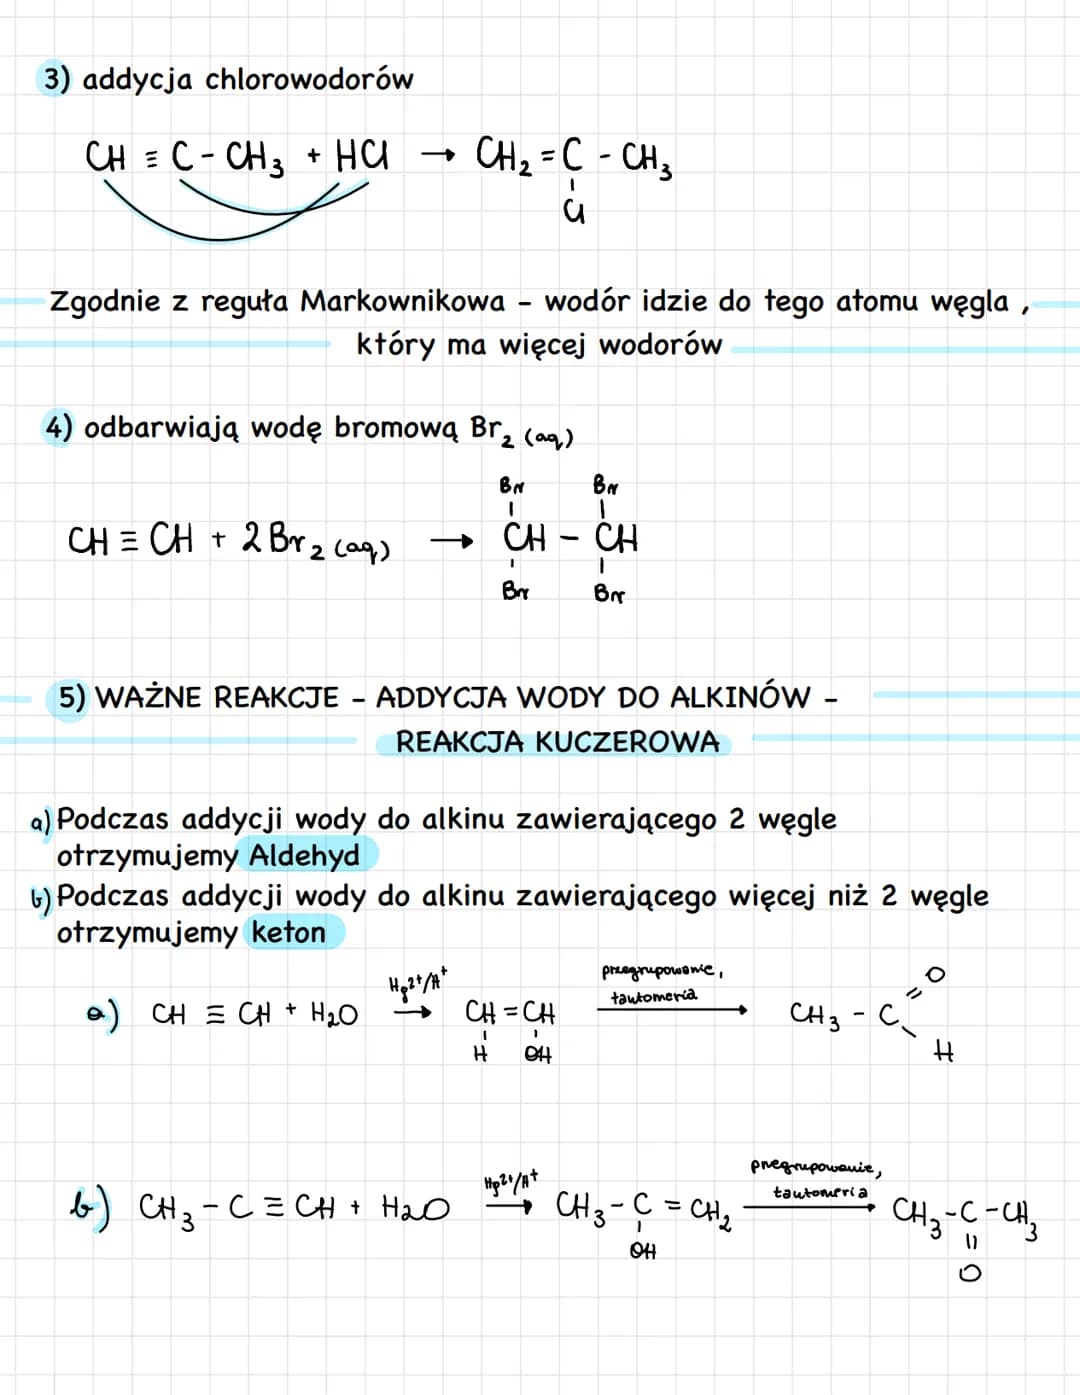 3) addycja chlorowodorów
CH ≡ C - CH₃ + HCl → CH₂ = C - CH₃
Cl
Zgodnie z reguła Markownikowa - wodór idzie do tego atomu węgla ,
który ma więcej wodorów
4) odbarwiają wodę bromową Br₂ (aq)
Br Br
CH ≡ CH + 2 Br₂ (aq) → CH - CH
Br Br
5) WAŻNE REAKCJE - ADDYCJA WODY DO ALKINÓW -
REAKCJA KUCZEROWA
a) Podczas addycji wody do alkinu zawierającego 2 węgle
otrzymujemy Aldehyd
b) Podczas addycji wody do alkinu zawierającego więcej niż 2 węgle
otrzymujemy keton
Hg²⁺/H⁺ przegrupowanie,
tautomeria
a) CH ≡ CH + H₂O → CH = CH → CH₃ - C = O
H OH H
Hg²⁺/H⁺ przegrupowanie,
tautomeria
b) CH₃ - C ≡ CH + H₂O → CH₃ - C = CH₂ → CH₃ - C - CH₃
OH = O